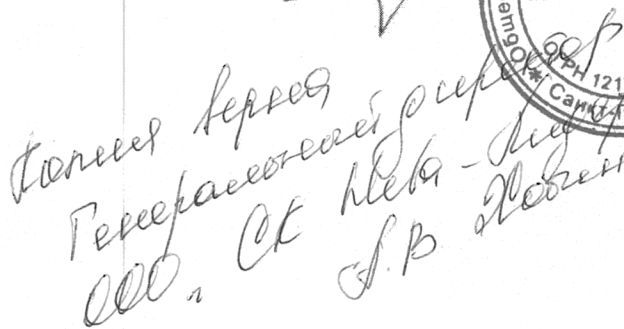 Копия верна
Генеральный директор
ООО „ СК Нева-
А.В
Обще
ОГРН 121
* Санкт-